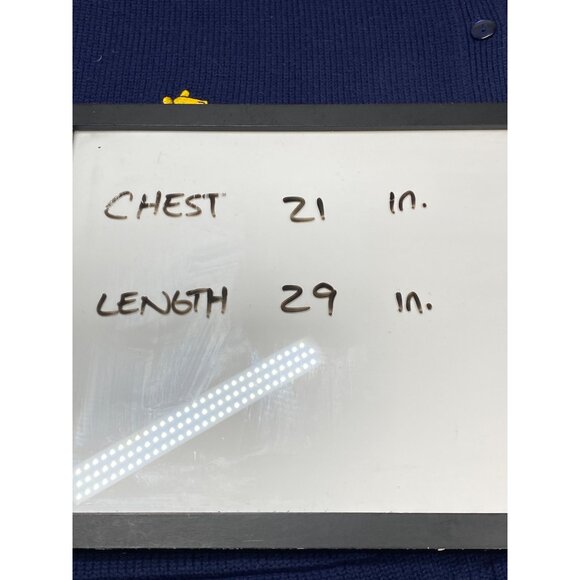 CHEST 21 in.
LENGTH 29 in.